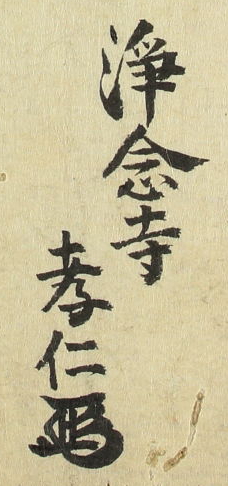 淨念寺
孝仁